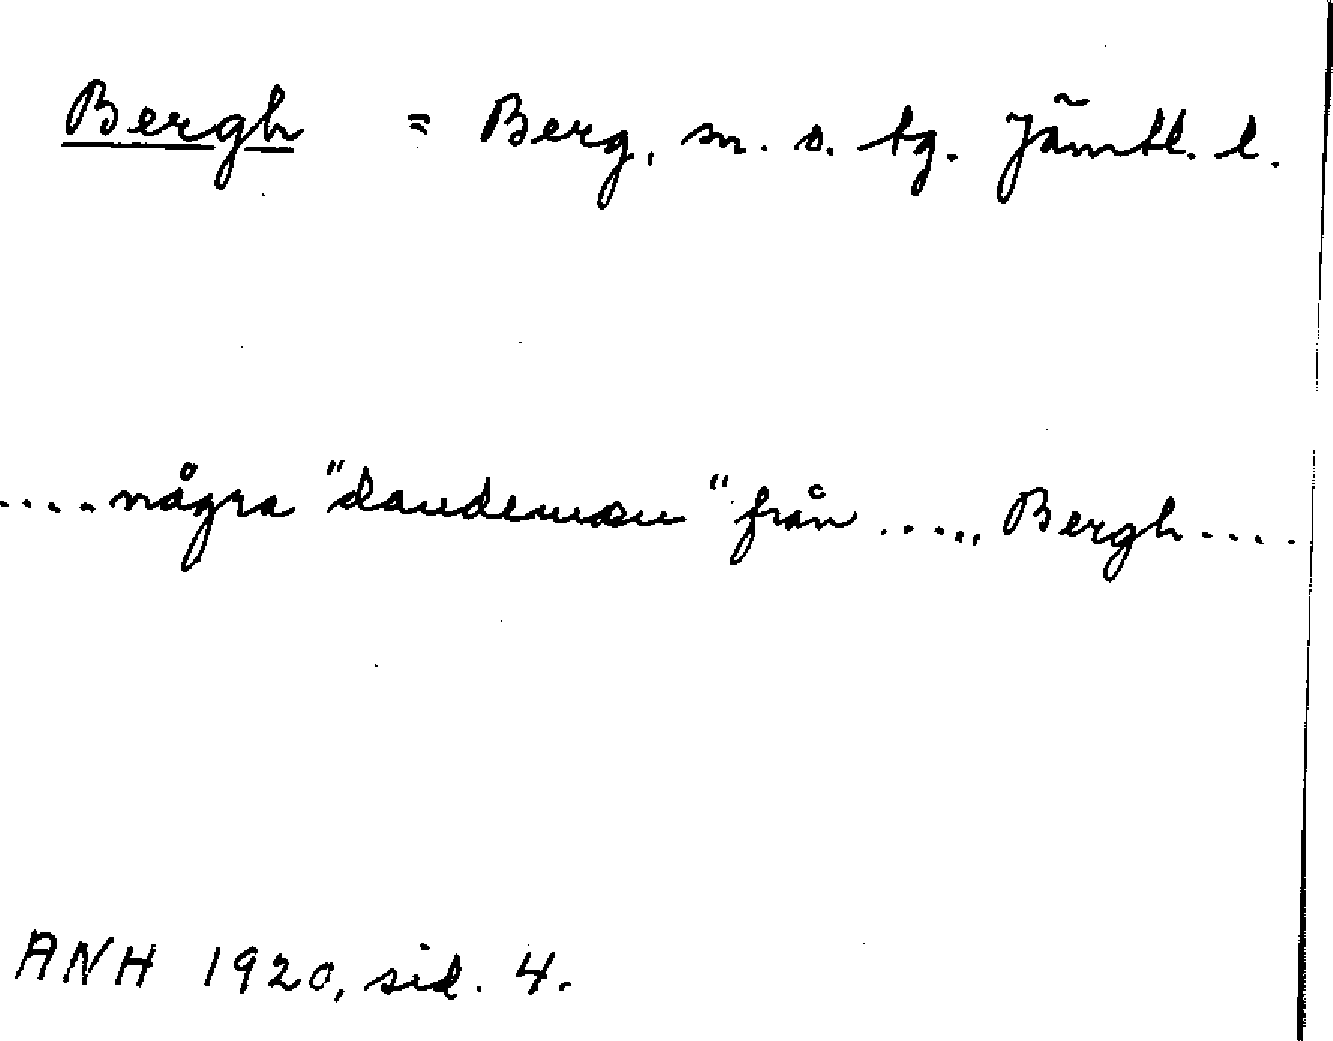 Bergh = Berg, sn. o. tg. Jämtl. l.
.... några "dandemän" från ...., Bergh ....
ANH 1920, sid. 4.